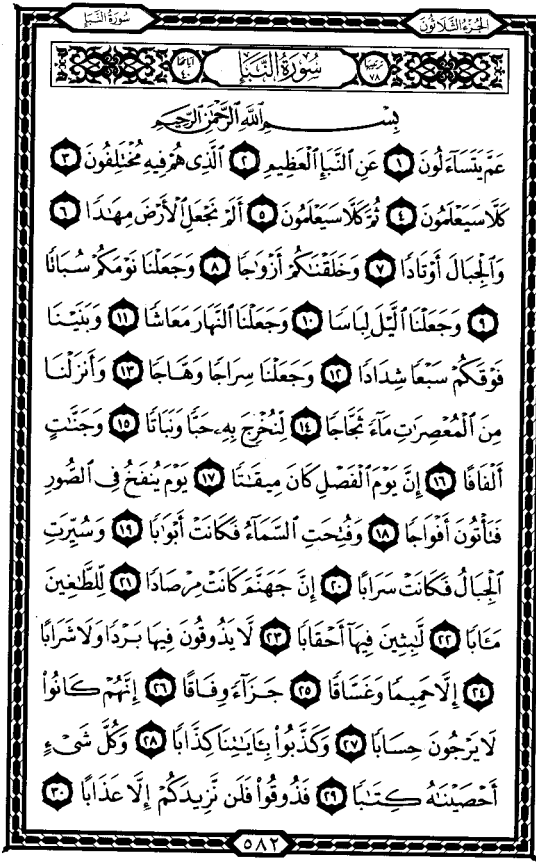 سُورَةُ النَّبَإِ الجُزْءُ الثَّلَاثُونَ
ترتيبها ٧٨ سُورَةُ النَّبَإِ آياتها ٤٠
بِسْمِ ٱللَّهِ ٱلرَّحْمَٰنِ ٱلرَّحِيمِ
عَمَّ يَتَسَآءَلُونَ ١ عَنِ ٱلنَّبَإِ ٱلْعَظِيمِ ٢ ٱلَّذِى هُمْ فِيهِ مُخْتَلِفُونَ ٣
كَلَّا سَيَعْلَمُونَ ٤ ثُمَّ كَلَّا سَيَعْلَمُونَ ٥ أَلَمْ نَجْعَلِ ٱلْأَرْضَ مِهَٰدًا ٦
وَٱلْجِبَالَ أَوْتَادًا ٧ وَخَلَقْنَٰكُمْ أَزْوَٰجًا ٨ وَجَعَلْنَا نَوْمَكُمْ سُبَاتًا
٩ وَجَعَلْنَا ٱلَّيْلَ لِبَاسًا ١٠ وَجَعَلْنَا ٱلنَّهَارَ مَعَاشًا ١١ وَبَنَيْنَا
فَوْقَكُمْ سَبْعًا شِدَادًا ١٢ وَجَعَلْنَا سِرَاجًا وَهَّاجًا ١٣ وَأَنزَلْنَا
مِنَ ٱلْمُعْصِرَٰتِ مَآءً ثَجَّاجًا ١٤ لِّنُخْرِجَ بِهِۦ حَبًّا وَنَبَاتًا ١٥ وَجَنَّٰتٍ
أَلْفَافًا ١٦ إِنَّ يَوْمَ ٱلْفَصْلِ كَانَ مِيقَٰتًا ١٧ يَوْمَ يُنفَخُ فِى ٱلصُّورِ
فَتَأْتُونَ أَفْوَاجًا ١٨ وَفُتِحَتِ ٱلسَّمَآءُ فَكَانَتْ أَبْوَٰبًا ١٩ وَسُيِّرَتِ
ٱلْجِبَالُ فَكَانَتْ سَرَابًا ٢٠ إِنَّ جَهَنَّمَ كَانَتْ مِرْصَادًا ٢١ لِّلطَّٰغِينَ
مَـَٔابًا ٢٢ لَّٰبِثِينَ فِيهَآ أَحْقَابًا ٢٣ لَّا يَذُوقُونَ فِيهَا بَرْدًا وَلَا شَرَابًا
٢٤ إِلَّا حَمِيمًا وَغَسَّاقًا ٢٥ جَزَآءً وِفَاقًا ٢٦ إِنَّهُمْ كَانُوا۟
لَا يَرْجُونَ حِسَابًا ٢٧ وَكَذَّبُوا۟ بِـَٔايَٰتِنَا كِذَّابًا ٢٨ وَكُلَّ شَىْءٍ
أَحْصَيْنَٰهُ كِتَٰبًا ٢٩ فَذُوقُوا۟ فَلَن نَّزِيدَكُمْ إِلَّا عَذَابًا ٣٠
٥٨٢